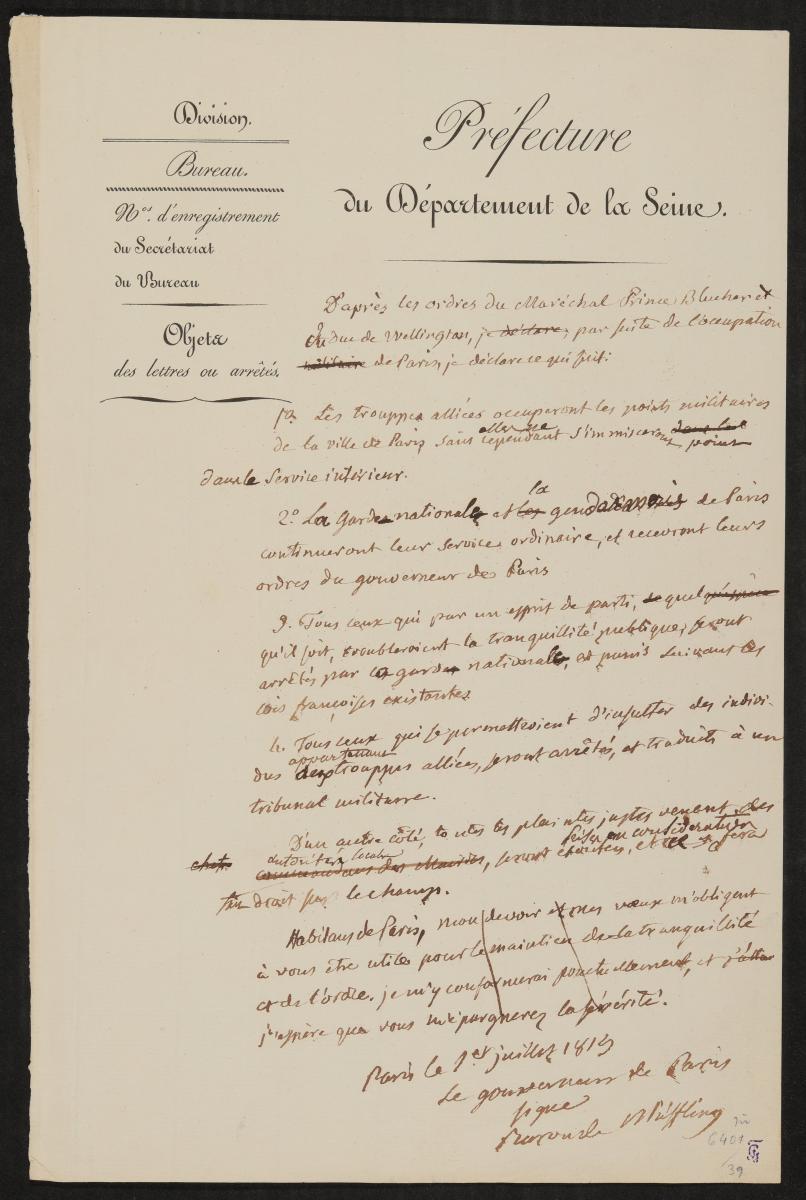 Division.
Bureau.
Nos. d'enregistrement
du Secrétariat
du Bureau
Objets
des lettres ou arrêtés.
Préfecture
du Département de la Seine.
D'après les ordres du Maréchal Prince Blucher et
du Duc de Wellington, je déclare, par suite de l'occupation
militaire de Paris, je déclare ce qui suit:
1o. Les trouppes alliées occuperont les points militaires
de la ville de Paris, sans cependant s'immiscer
dans le service intérieur.
2o. La Garde nationale et la gendarmerie de Paris
continueront leur service ordinaire, et recevront leurs
ordres du gouverneur de Paris
3. Tous ceux qui par un esprit de parti, quel
qu'il soit, troubleroient la tranquillité publique, seront
arrêtés par la garde nationale, et punis suivant les
lois françoises existantes
4. Tous ceux qui se permettroient d'insulter des indivi-
appartenant
dus des trouppes alliées, seront arrêtés, et traduits à un
tribunal militaire.
D'un autre côté, toutes les plaintes justes venant des
autorités locales
commandans des Mairies, seront écoutées, et il sera
fait droit sur le champ.
Habitans de Paris, mon devoir et mes vœux m'obligent
à vous être utile pour le maintien de la tranquillité
et de l'ordre. je m'y conformerai ponctuellement, et
j'espère que vous m'épargnerez la sévérité.
Paris le 1er juillet 1815
Le gouverneur de Paris
signé
Baron de Müffling
6401
39